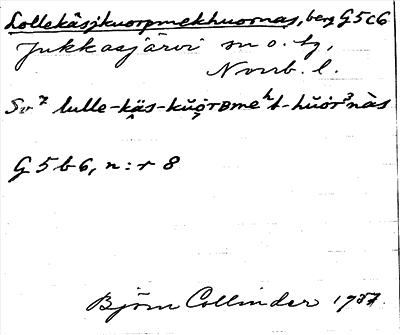 Lollekåsjkuorpmekhuornas, berg G5c6
Jukkasjärvi sn o. tg,
Norrb. l.
Sv 7 lulle-käs-kŭo̯rʙmeʰt-hŭòr³nàs
G5b6, n:r 8
Björn Collinder 1937.